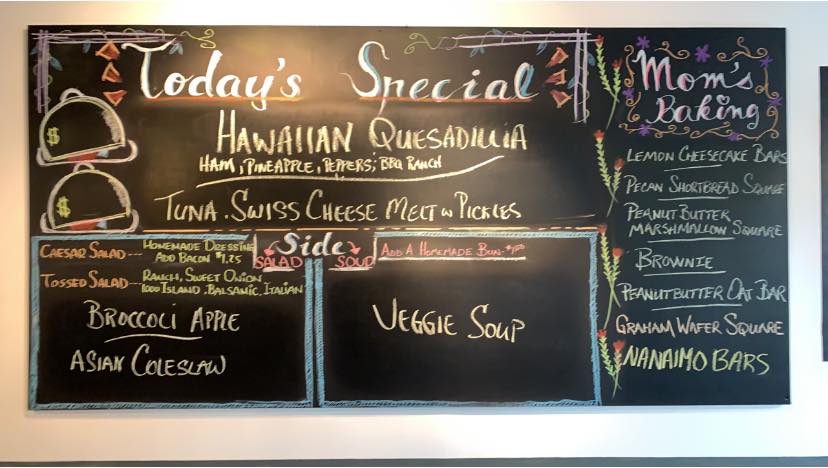 Today's Special
HAWAIIAN QUESADILLIA
HAM, PINEAPPLE, PEPPERS, BBQ RANCH
TUNA. SWISS CHEESE MELT W PICKLES
$
$
Side
SALAD
SOUP
CAESAR SALAD --- HOMEMADE DRESSING
ADD BACON $1.25
TOSSED SALAD --- RANCH, SWEET ONION
1000 ISLAND, BALSAMIC, ITALIAN
BROCCOLI APPLE
ASIAN COLESLAW
ADD A HOMEMADE BUN-
VEGGIE SOUP
Mom's
Baking
LEMON CHEESECAKE BARS
PECAN SHORTBREAD SQUARE
PEANUT BUTTER
MARSHMALLOW SQUARE
BROWNIE
PEANUTBUTTER OAT BAR
GRAHAM WAFER SQUARE
NANAIMO BARS